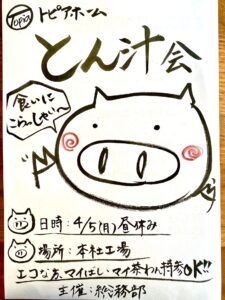 Topia トピアホーム
とん汁会
食いに
こらっしゃいへ
日時：4/5(月)昼休み
場所：本社工場
エコな方、マイはし・マイ茶わん持参OK!!
主催：総務部